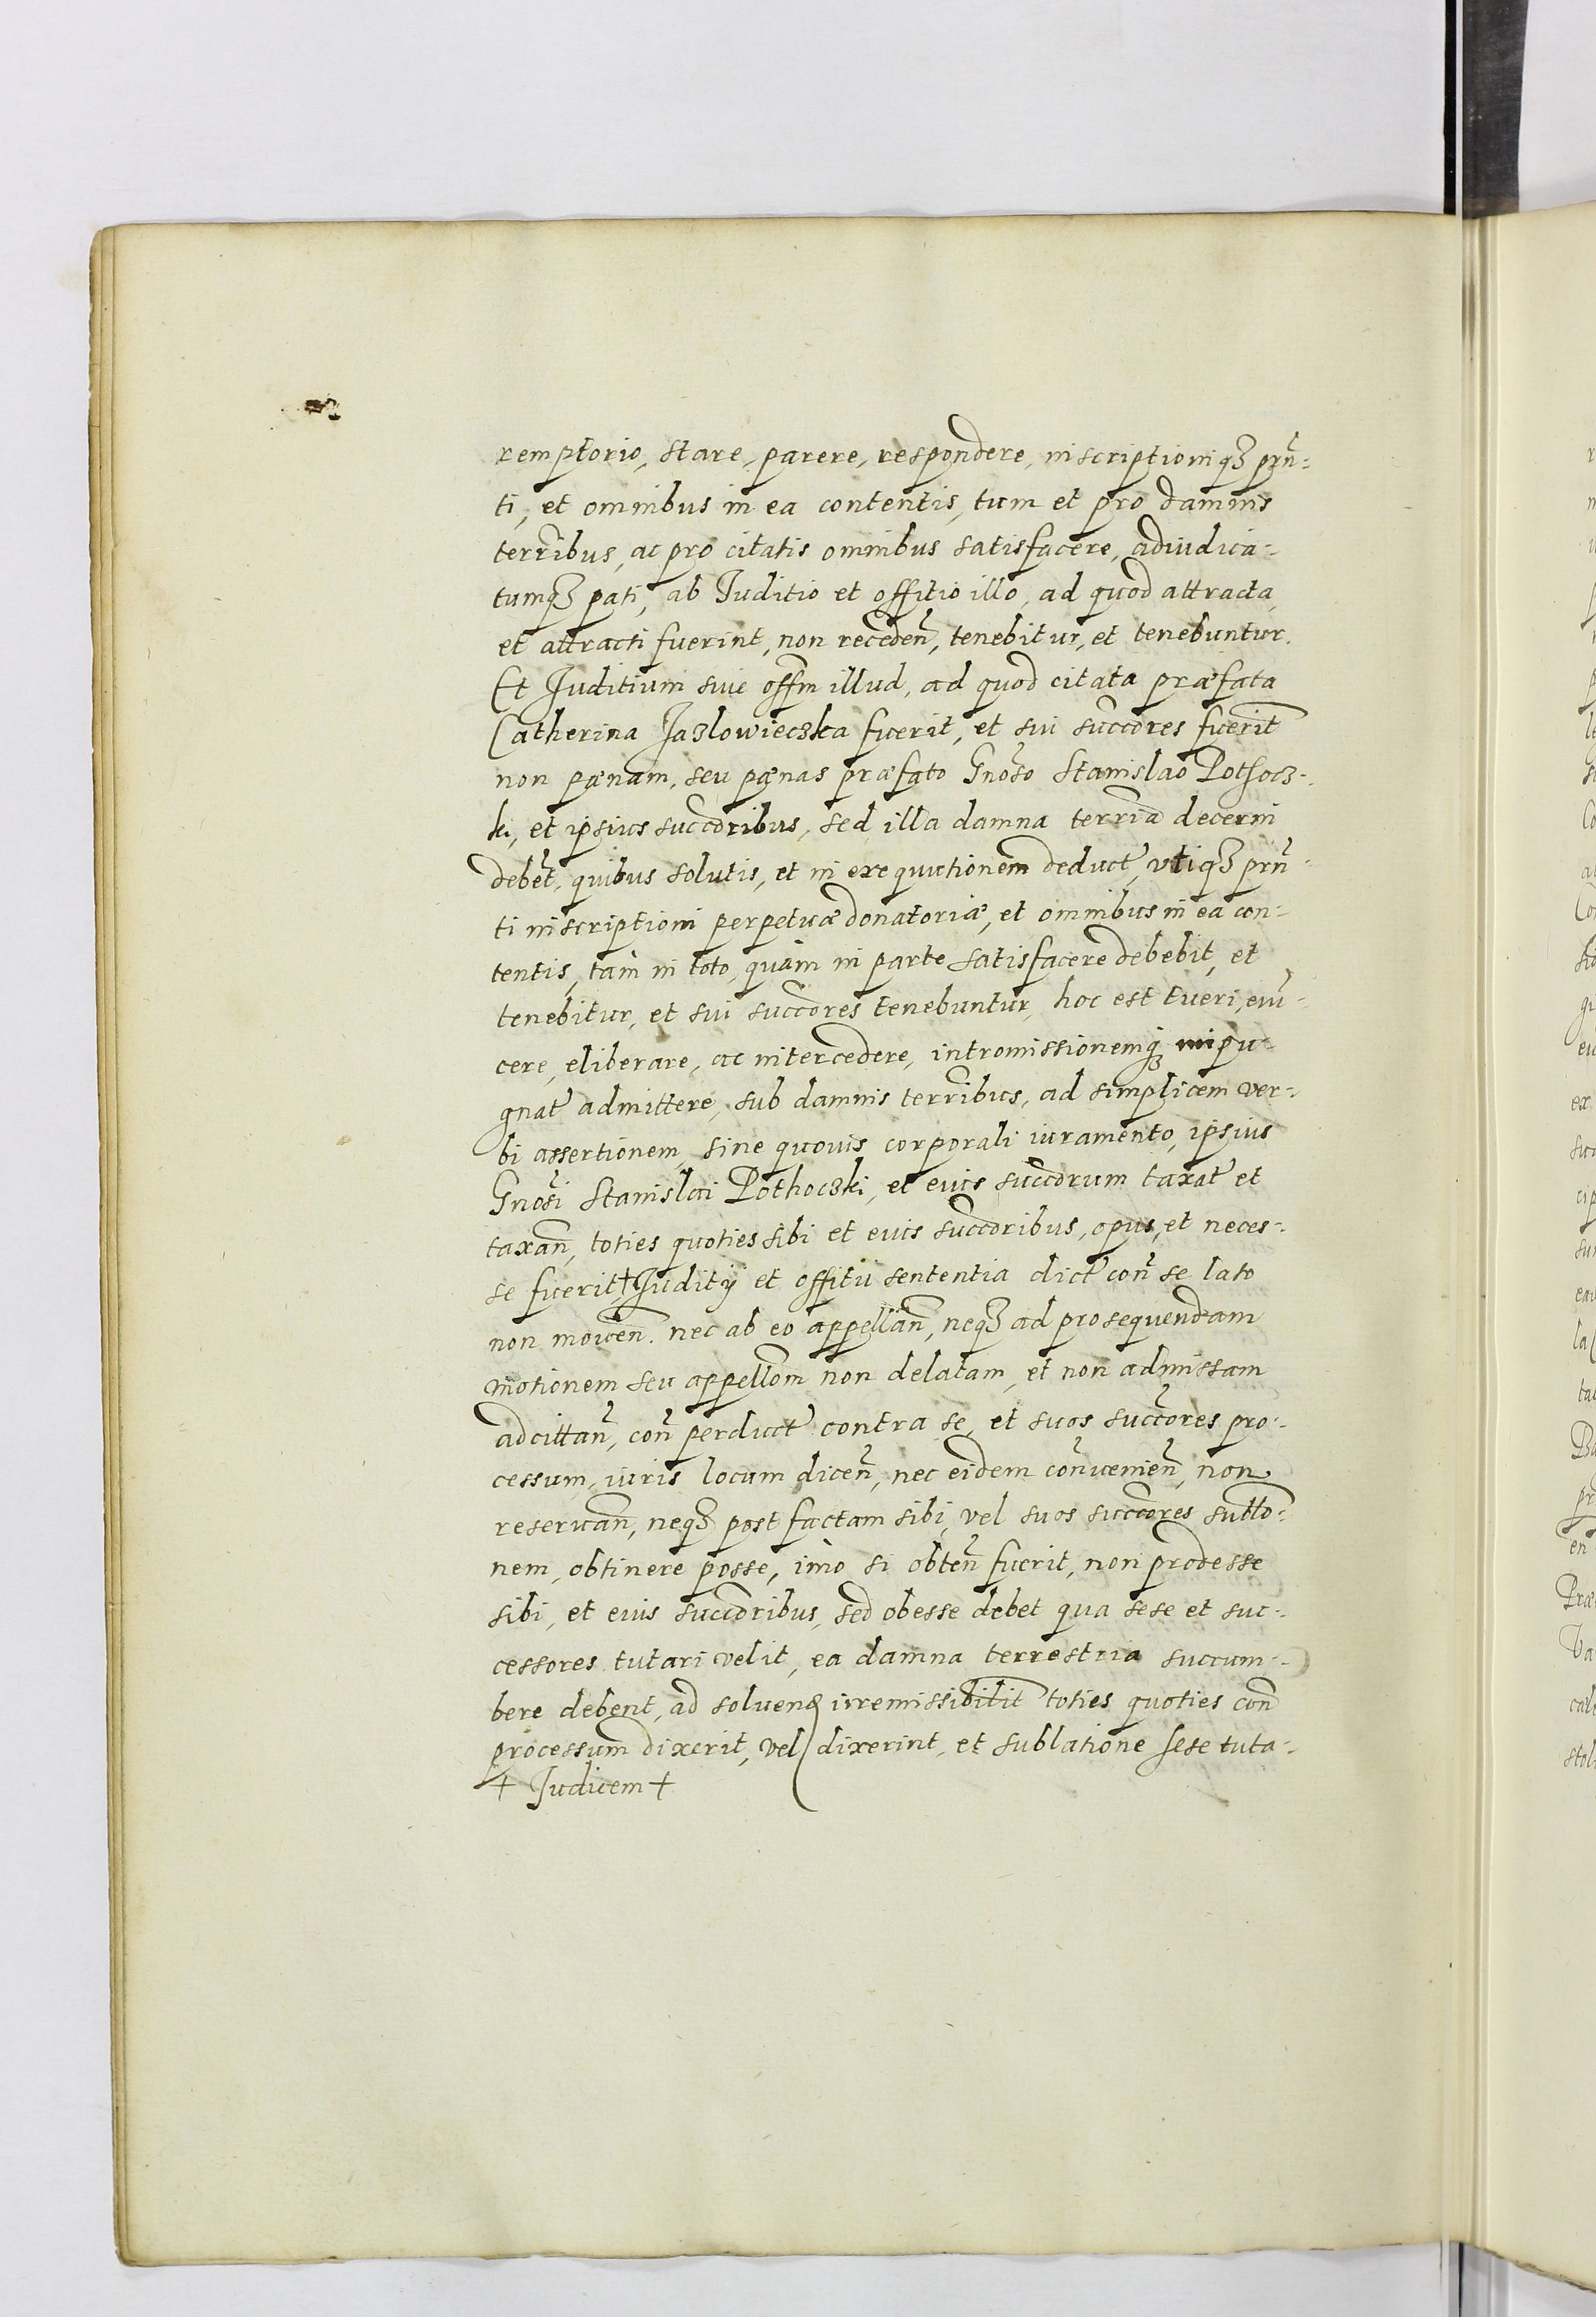 remptorio, stare, parere, respondere, inscriptioniqз prñ-
ti, et omnibus in ea contentis, tum et pro damnis
terribus, ac pro citatis omnibus satisfacere, adiudica-
tumqз pati, ab Iuditio et offitio illo, ad quod attracta,
et attracti fuerint, non recedeñ, tenebitur, et tenebuntur.
Et Iuditium siue offm illud, ad quod citata præfata
Catherina Jazlowieczka fuerit, et sui succores fuerit
non pænam, seu pænas præfato Gnoso Stanislao Pothocz-
ki, et ipsius succoribus, sed illa damna terria decerni
debet, quibus solutis, et in exequutionem deduct, vtiqз prñ-
ti inscriptioni perpetuæ donatoriæ, et omnibus in ea con-
tentis, tam in toto, quàm in parte satisfacere debebit, et
tenebitur, et sui succores tenebuntur, hoc est tueri, eui-
cere, eliberare, ac intercedere, intromissionemqз inpu-
gnat admittere, sub damnis terribus, ad simplicem ver-
bi assertionem, sine quouis corporali iuramento, ipsius
Gnosi Stanislai Pothoczki, et eius succorum taxat et
taxañ, toties quoties sibi et eius succoribus, opus, et neces-
se fuerit, † Iuditÿ et offitii sententia dict coñ se lato
non moueñ. nec ab eo appellañ, neqз ad prosequendam
motionem seu appellom non delatam, et non admissam
adcittañ, coñ perduct contra se, et suos succores pro-
cessum, iuris locum diceñ, nec eidem conuenieñ, non
reseruañ, neqз post factam sibi, vel suos succores sublo-
nem, obtinere posse, imo si obteñ fuerit, non prodesse
sibi, et eius succoribus, sed obesse debet qua sese et suc-
cessores tutari velit, ea damna terrestria succum-
bere debent, ad soluend irremissibilit toties quoties coñ
processum dixerit, vel dixerint, et sublatione sese tuta-
† Iudicem †